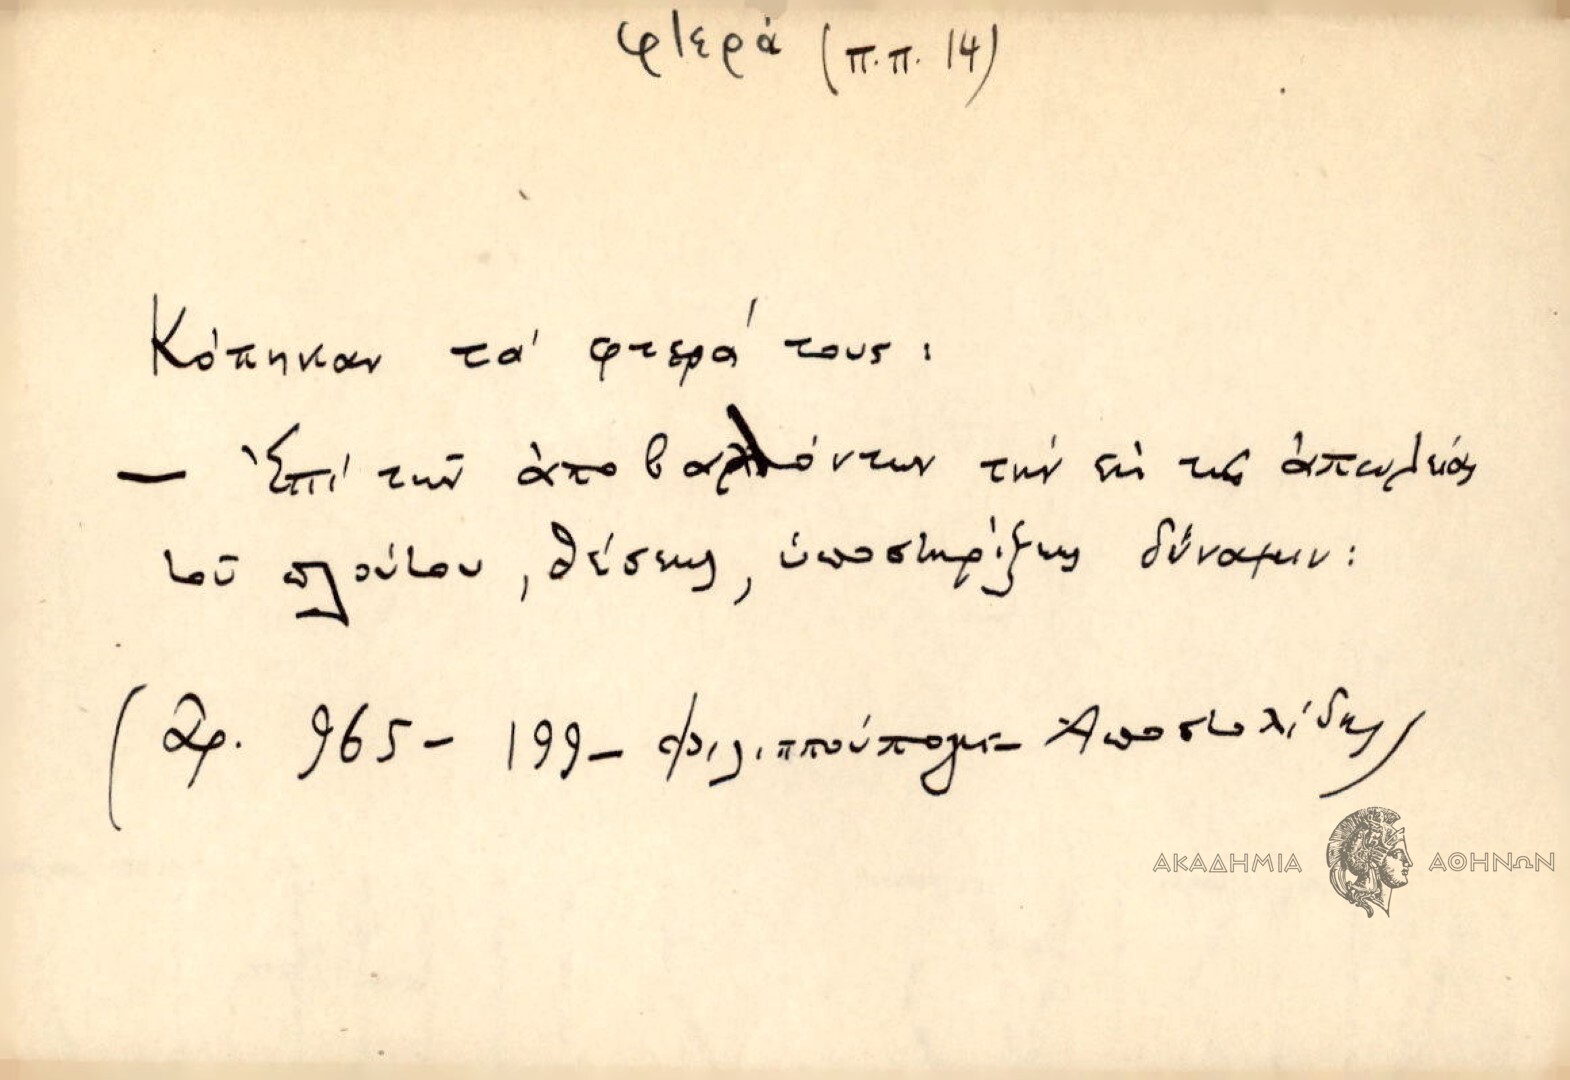 φτερά (π.π. 14)
Κόπηκαν τά φτερά τους:
— Ἐπί τῶν ἀποβαλόντων τήν ἐκ τῆς ἀπωλείας
τοῦ πλούτου, θέσεως, ὑποστηρίξεως δύναμιν:
(Ἀρ. 965 - 199 - Φιλιππούπολις - Ἀποστολίδης)
ΑΚΑΔΗΜΙΑ ΑΘΗΝΩΝ